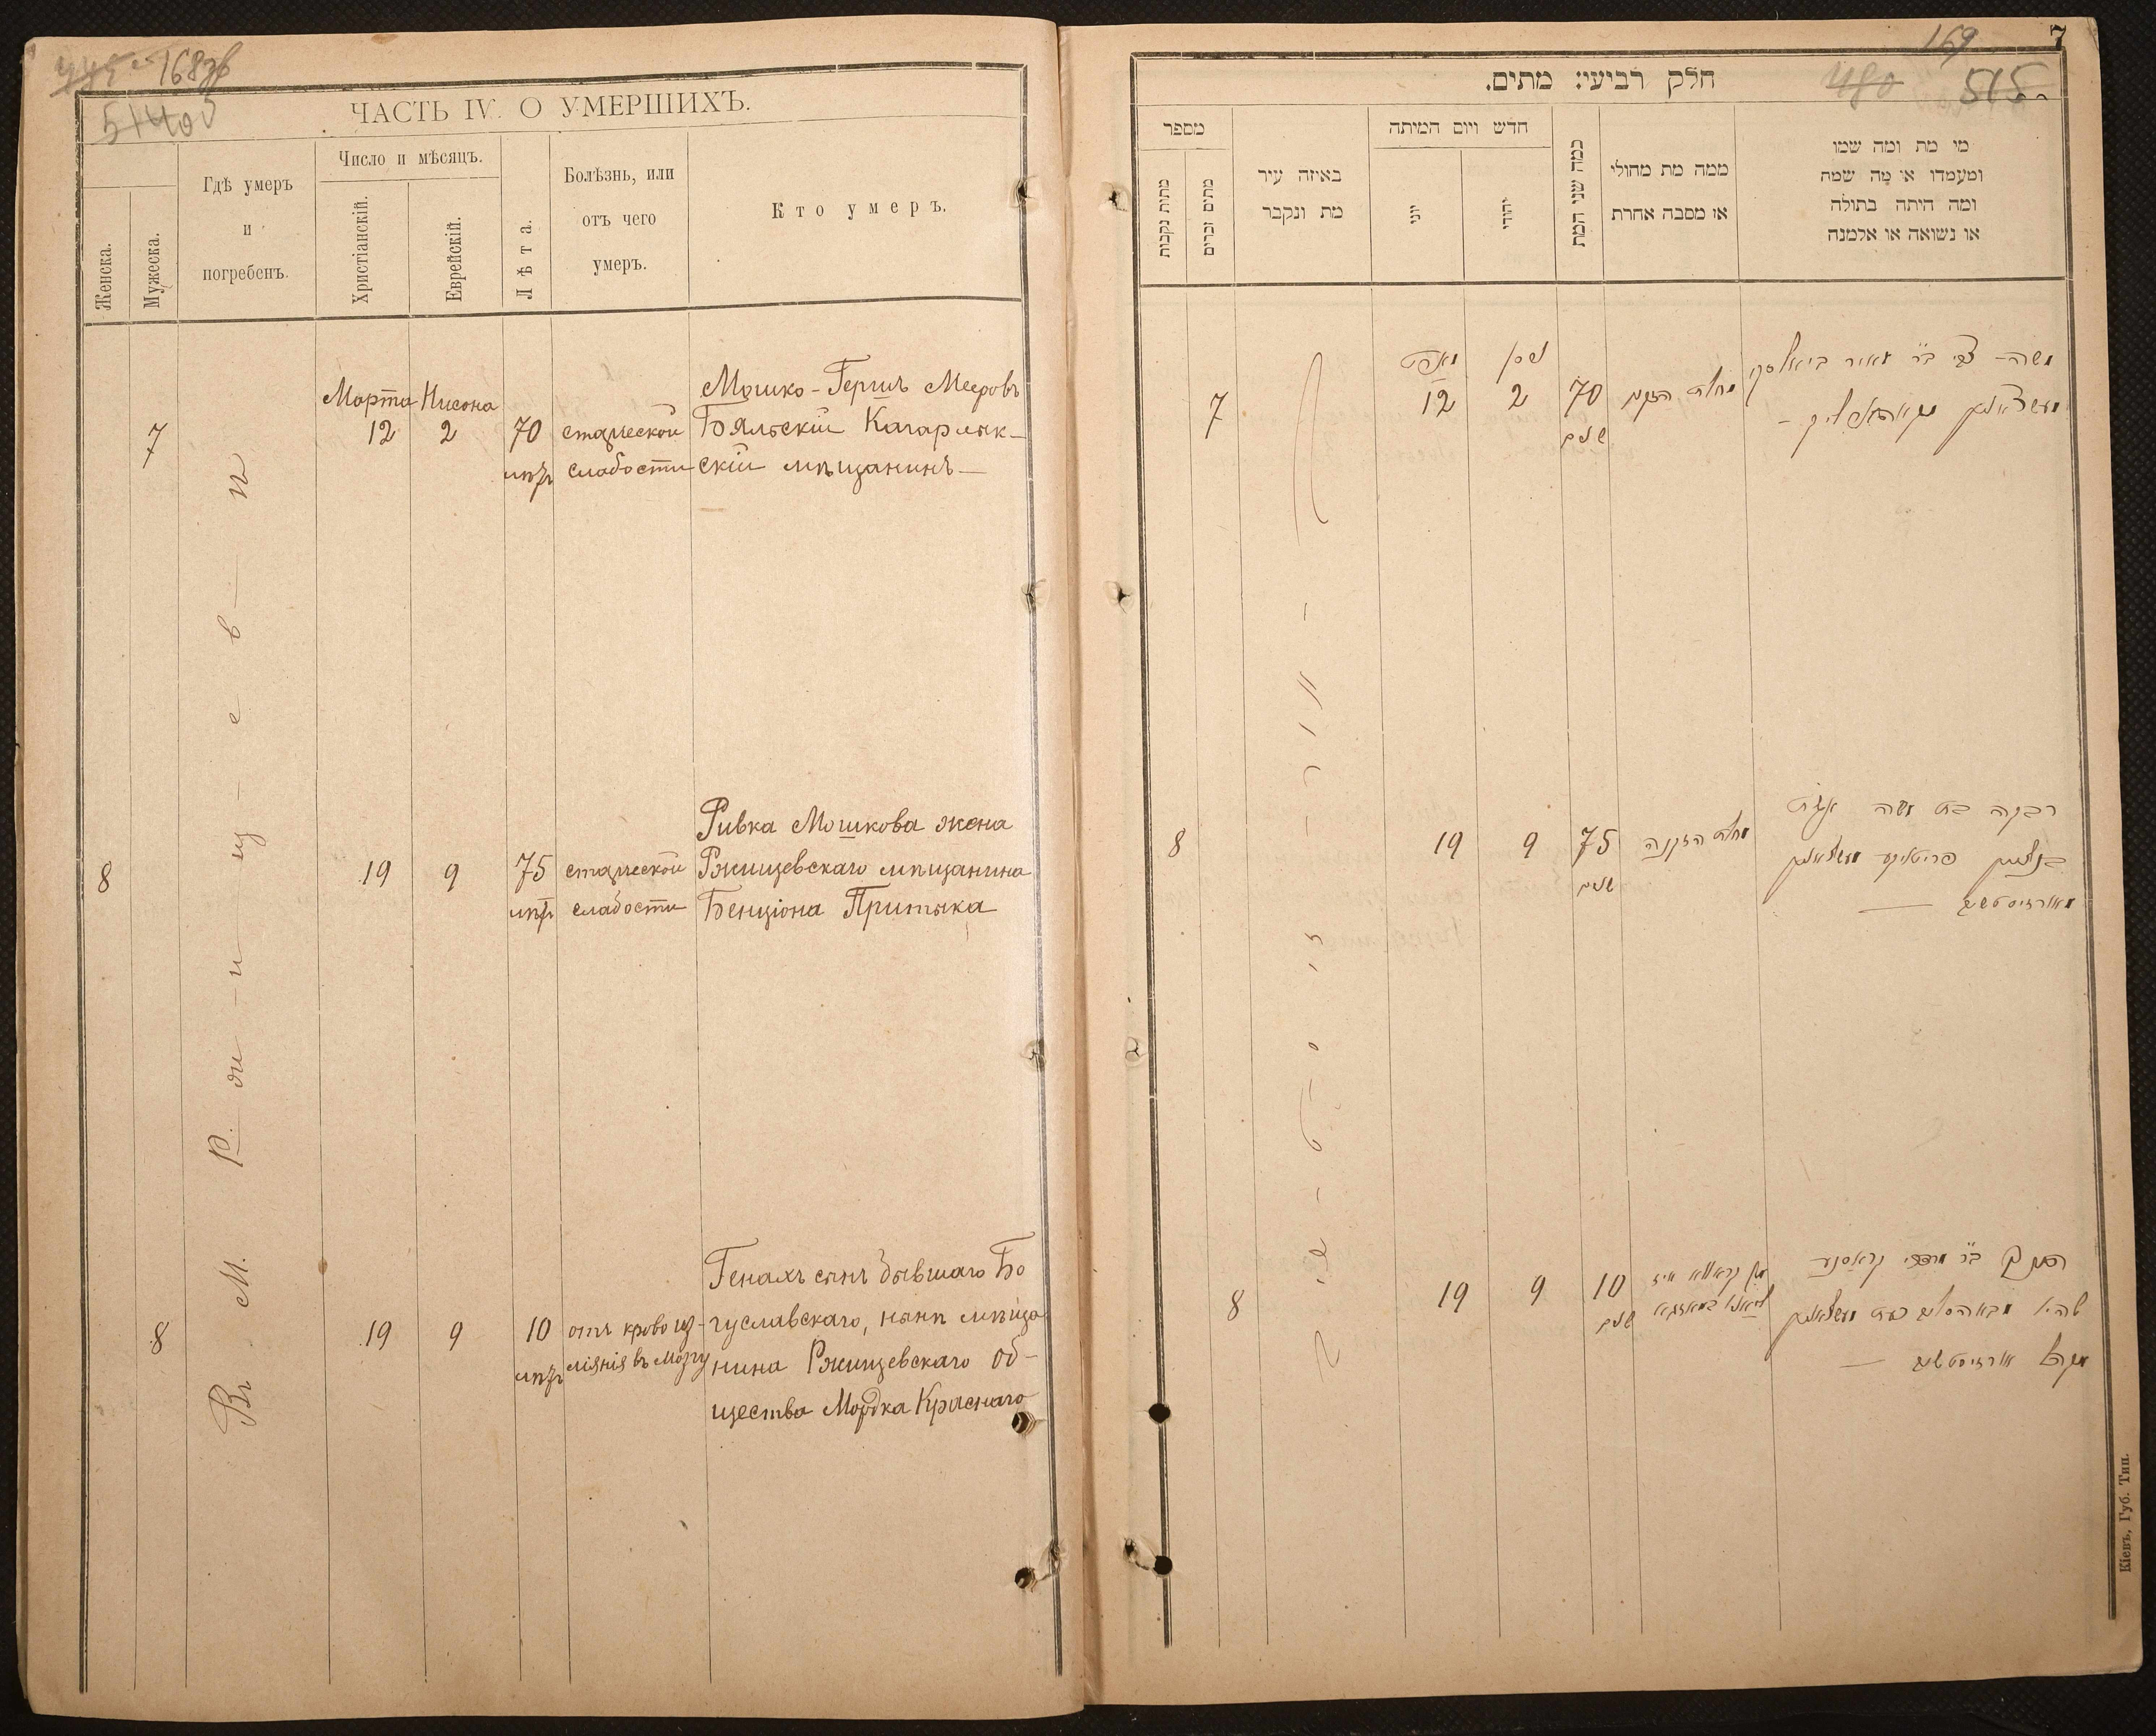 168об
ЧАСТЬ IV. О УМЕРШИХЪ.
Женска.
Мужеска.
Гдѣ умеръ
и
погребенъ.
Число и мѣсяцъ.
Христіанскій.
Еврейскій.
Лѣта.
Болѣзнь, или
отъ чего
умеръ.
Кто умеръ.
Въ М. Р-жи-и-щ-е-в-ѣ
Мошко-Гершъ Мееровъ
Марта Нисона
7 12 2 70 старческой Бяльскій Кагарлык-
лѣтъ слабости скій мѣщанинъ—
Ривка Мошкова жена
8 19 9 75 старческой Ржищевскаго мѣщанина
лѣтъ слабости Бенціона Притыка
Генахъ сынъ бывшаго Бо
8 19 9 10 отъ кровоиз- гуславскаго, нынѣ мѣща
лѣтъ ліянія въ мозгу нина Ржищевскаго об-
щества Мордка Краснаго
169
7
480
515
חלק רביעי: מתים.
מספר
מתות נקבות
מתים זכרים
באיזה עיר
מת ונקבר
חדש ויום המיתה
יוני
יהודי
כמה שני המת
ממה מת מחולי
או מסבה אחרת
מי מת ומה שמו
ומעמדו או מָה שמה
ומה היתה בתולה
או נשואה או אלמנה
מארט ניסן
7 12 2 70
שנים
משה- צבי ב״ר מאיר ביאלסקי
8 19 9 75
שנים
רבקה בת משה אשת
8 19 9 10
שנים
ב״ר מרדכי קראסנע
Кіевъ, Губ. Тип.